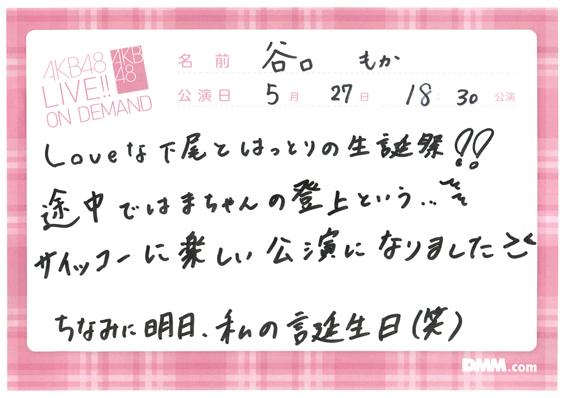 AKB48
LIVE!!
ON DEMAND
AKB
48
名前 谷口 もか
公演日 5月 27日 18:30 公演
Loveな下尾とはっとりの生誕祭!!
途中ではまちゃんの登上という..
サイッコーに楽しい公演になりました
ちなみに明日、私の誕生日(笑)
DMM.com